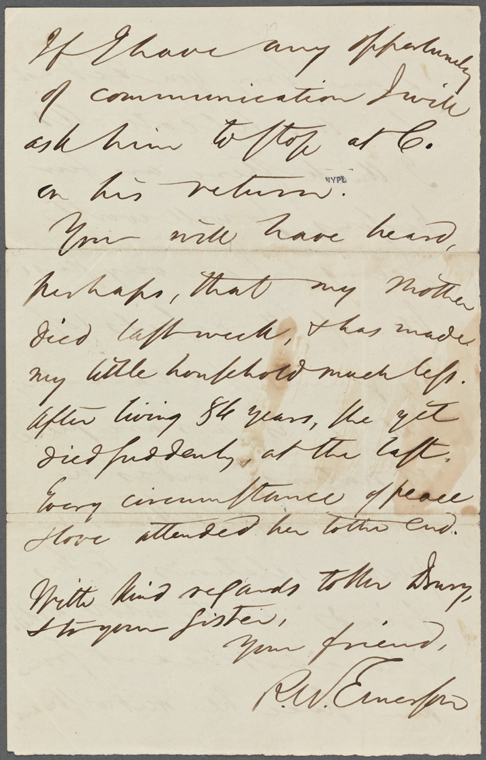 If I have any opportunity
of communication I will
ask him to stop at C.
on his return.
NYPL
You will have heard,
perhaps, that my mother
died last week, & has made
my little household much less.
After living 84 years, she yet
died suddenly, at the last.
Every circumstance of peace
& love attended her to the end.
With kind regards to Mr Drury,
& to your sister,
Your friend,
R. W. Emerson